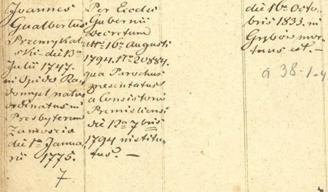 Joannes
Gualbertus
Przemykal-
ski die 13a
Julii 1747.
in Opido Ra-
domysl natus
ordinatus in
Presbyterum
Zamoscia
die 1a Janua-
rii 1775.
7
Per Excels:
Gubernii
Decretum
dtto 16a Augusti
1794. Nro 20884.
qua Parochus
praesentatus
a Consistorio
Premisliensi
die 12a 7bris
1794 institu-
tus. —
die 16a Octo-
bris 1833. in
Grybów mor-
tuus est —
a 38-1-4